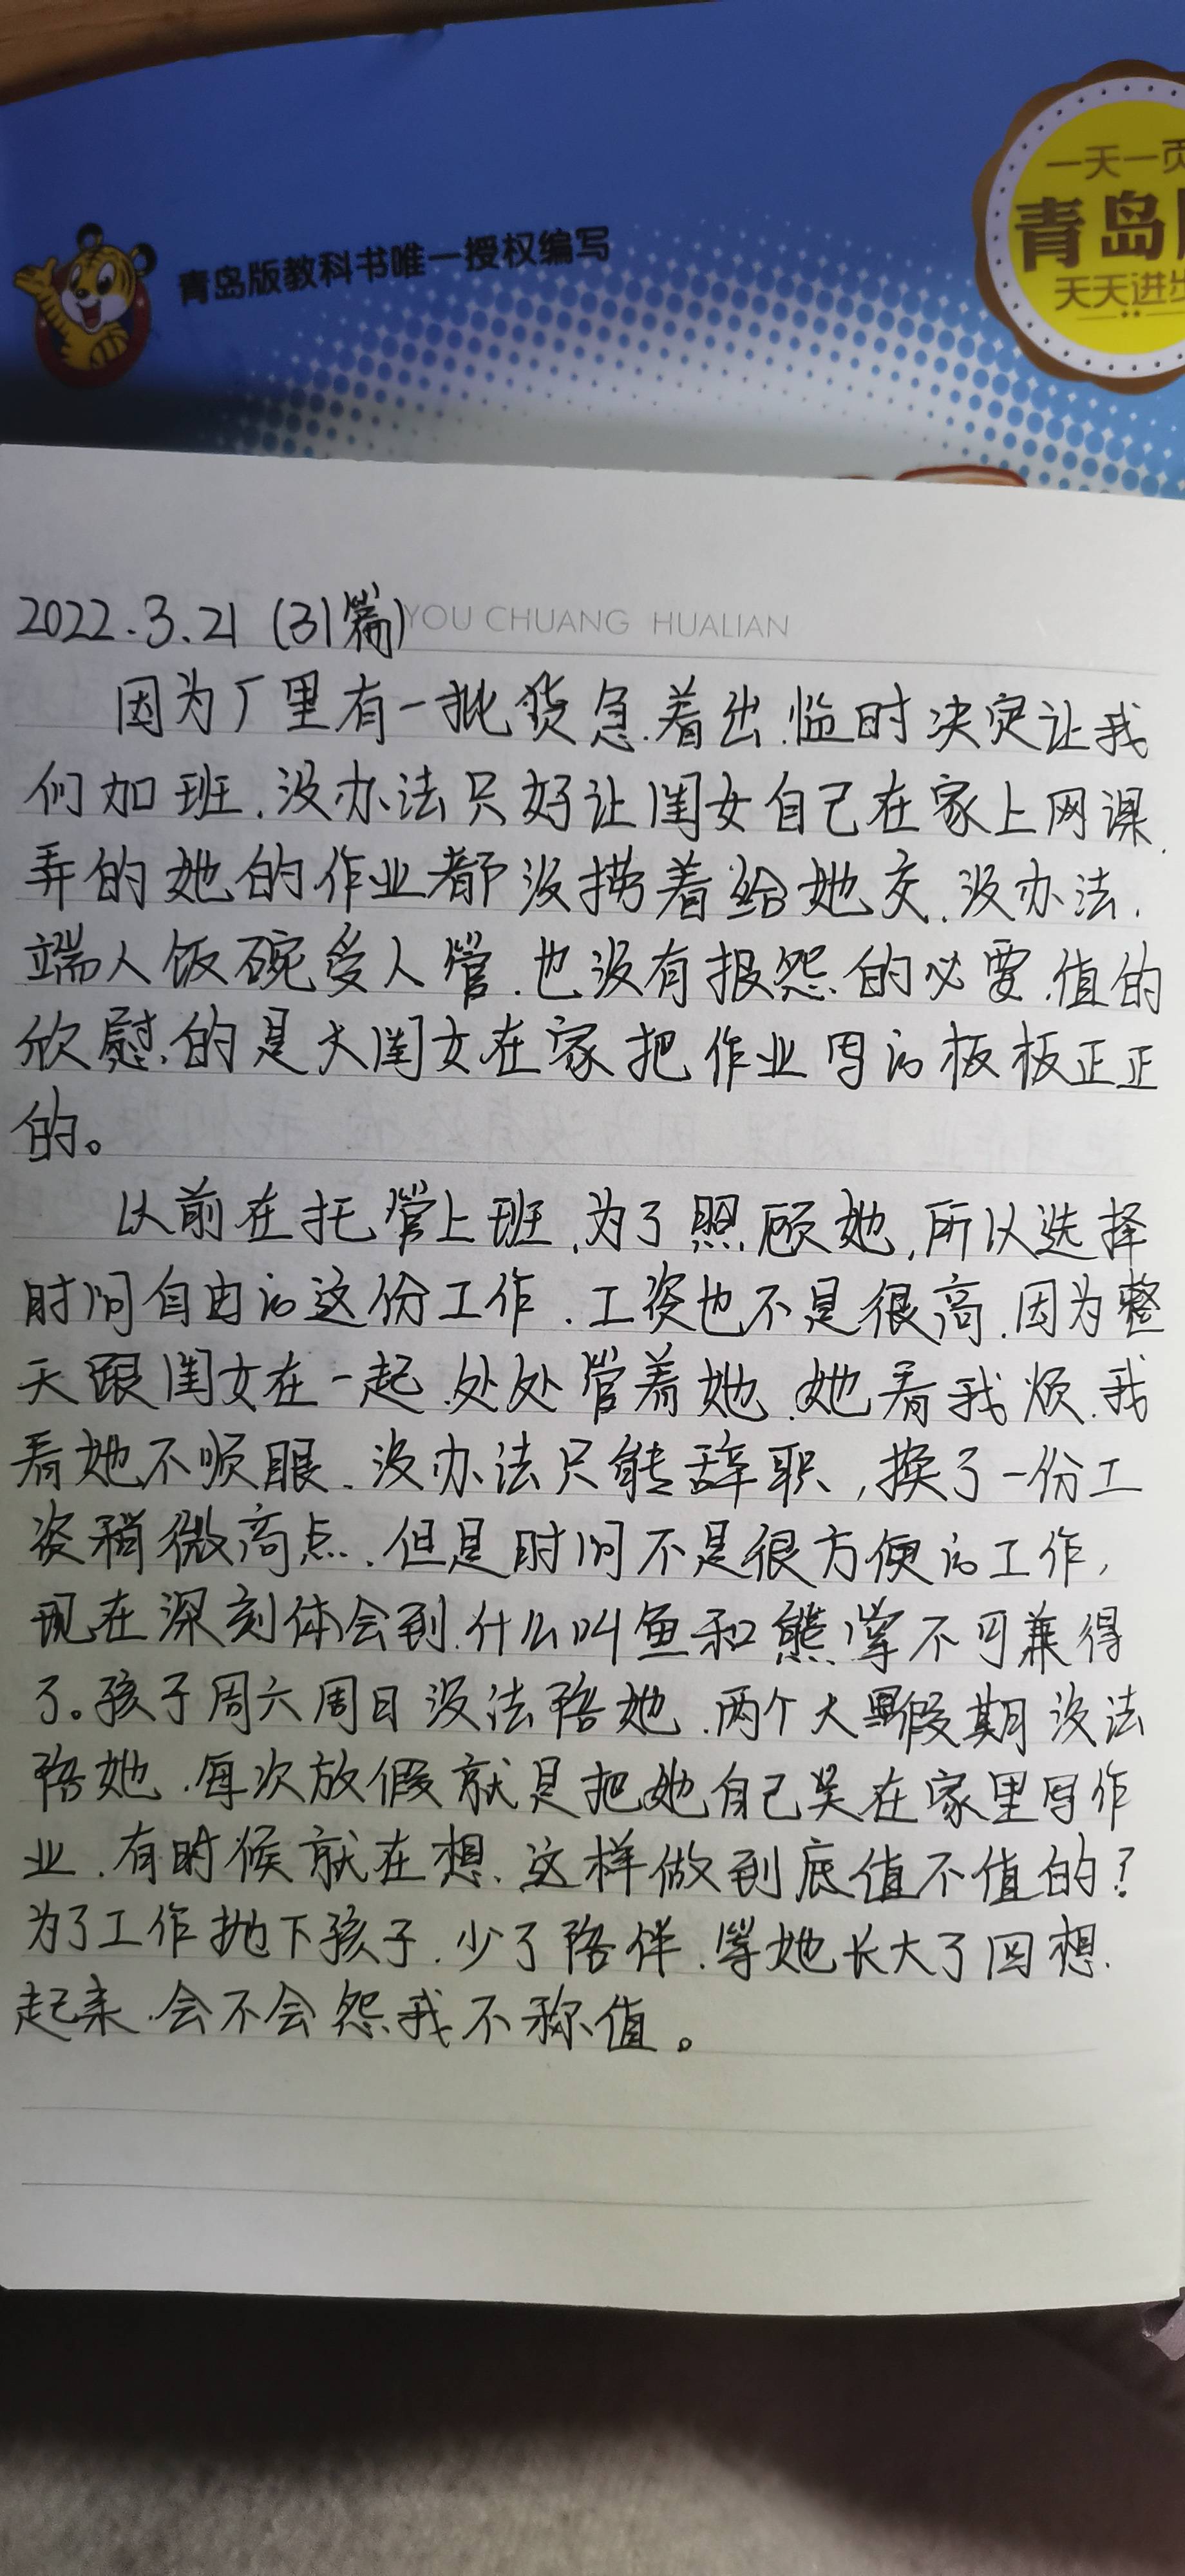 一天一页
青岛版
天天进步
青岛版教科书唯一授权编写
YOU CHUANG HUALIAN
2022.3.21 (31篇)
因为厂里有一批货急着出.临时决定让我
们加班.没办法只好让闺女自己在家上网课.
弄的她的作业都没捞着给她交.没办法.
端人饭碗受人管.也没有报怨的必要.值的
欣慰的是大闺女在家把作业写的板板正正
的。
以前在托管上班.为了照顾她.所以选择
时间自由的这份工作.工资也不是很高.因为整
天跟闺女在一起.处处管着她.她看我烦.我
看她不顺眼.没办法只能辞职,换了一份工
资稍微高点.但是时间不是很方便的工作,
现在深刻体会到.什么叫鱼和熊掌不可兼得
了。孩子周六周日没法陪她.两个大假期没法
陪她.每次放假就是把她自己关在家里写作
业.有时候就在想.这样做到底值不值的?
为了工作抛下孩子.少了陪伴.等她长大了回想.
起来.会不会怨我不称值。